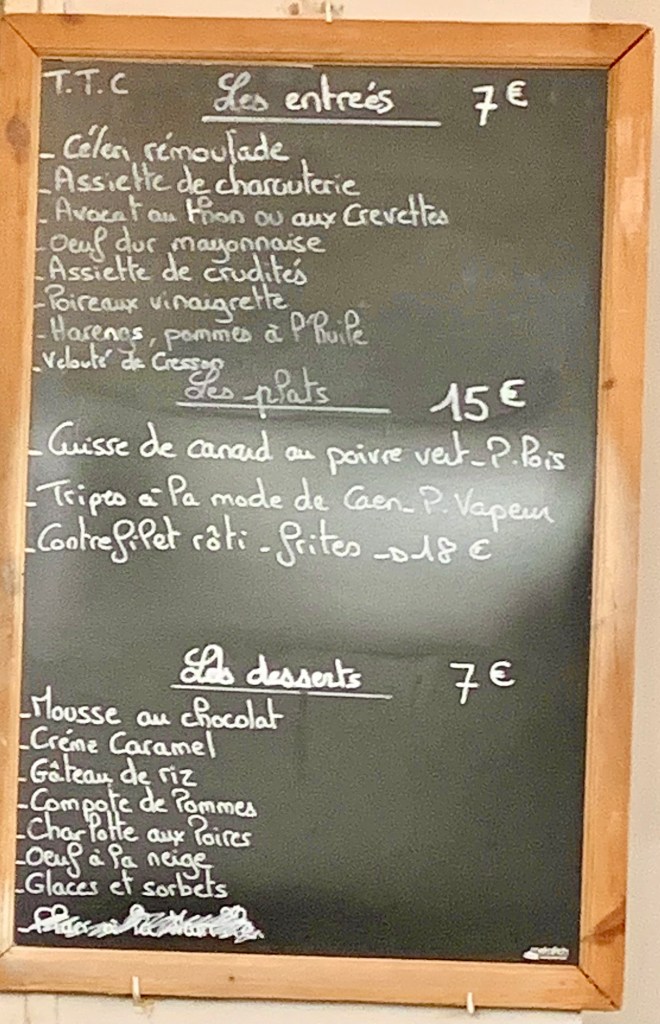 T.T.C Les entreés 7€
- Céleri rémoulade
- Assiette de charcuterie
- Avocat au thon ou aux Crevettes
- Oeuf dur mayonnaise
- Assiette de crudités
- Poireaux vinaigrette
- Harengs, pommes à l'huile
- Velouté de Cresson
Les plats 15€
- Cuisse de canard au poivre vert - P. Pois
- Tripes à la mode de Caen - P. Vapeur
- Contrefilet rôti - frites → 18 €
Les desserts 7€
- Mousse au chocolat
- Créme Caramel
- Gâteau de riz
- Compote de Pommes
- Charlotte aux Poires
- Oeuf à la neige
- Glaces et sorbets